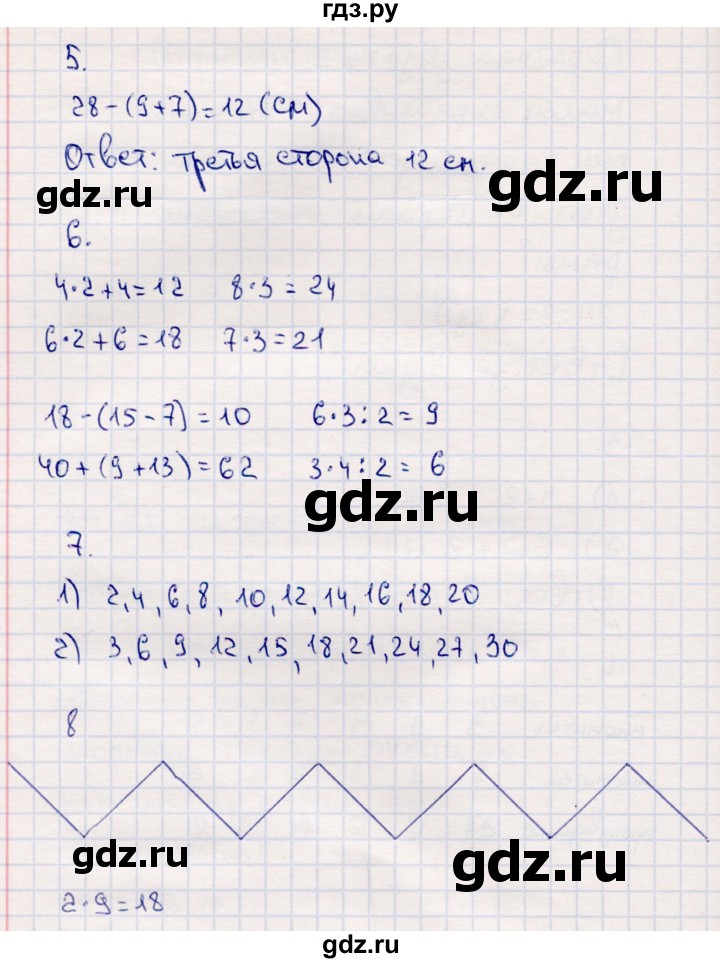 гдз.ру
5.
28-(9+7)=12 (см)
Ответ: третья сторона 12 см.
gdz.ru
gdz.ru
6.
4·2+4=12 8·3=24
6·2+6=18 7·3=21
18-(15-7)=10 6·3:2=9
40+(9+13)=62 3·4:2=6
gdz.ru
7.
1) 2,4,6,8,10,12,14,16,18,20
2) 3,6,9,12,15,18,21,24,27,30
8
gdz.ru
gdz.ru
2·9=18
gdz.ru